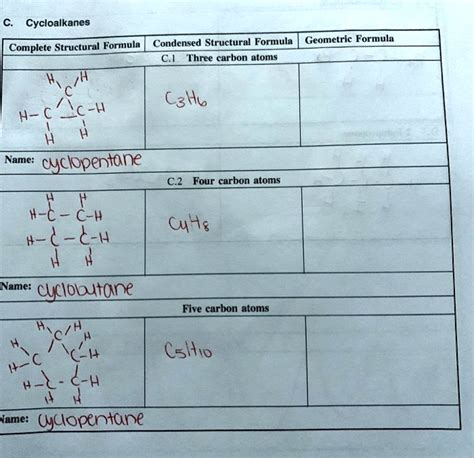 C. Cycloalkanes
Complete Structural Formula Condensed Structural Formula Geometric Formula
C.1 Three carbon atoms
H H
C
H-C C-H
H H
C3H6
Name: cyclopentane
C.2 Four carbon atoms
H H
H-C-C-H
H-C-C-H
H H
C4H8
Name: cyclobutane
Five carbon atoms
H H
C
H H
C C-H
H
H-C-C-H
H H
C5H10
Name: cyclopentane